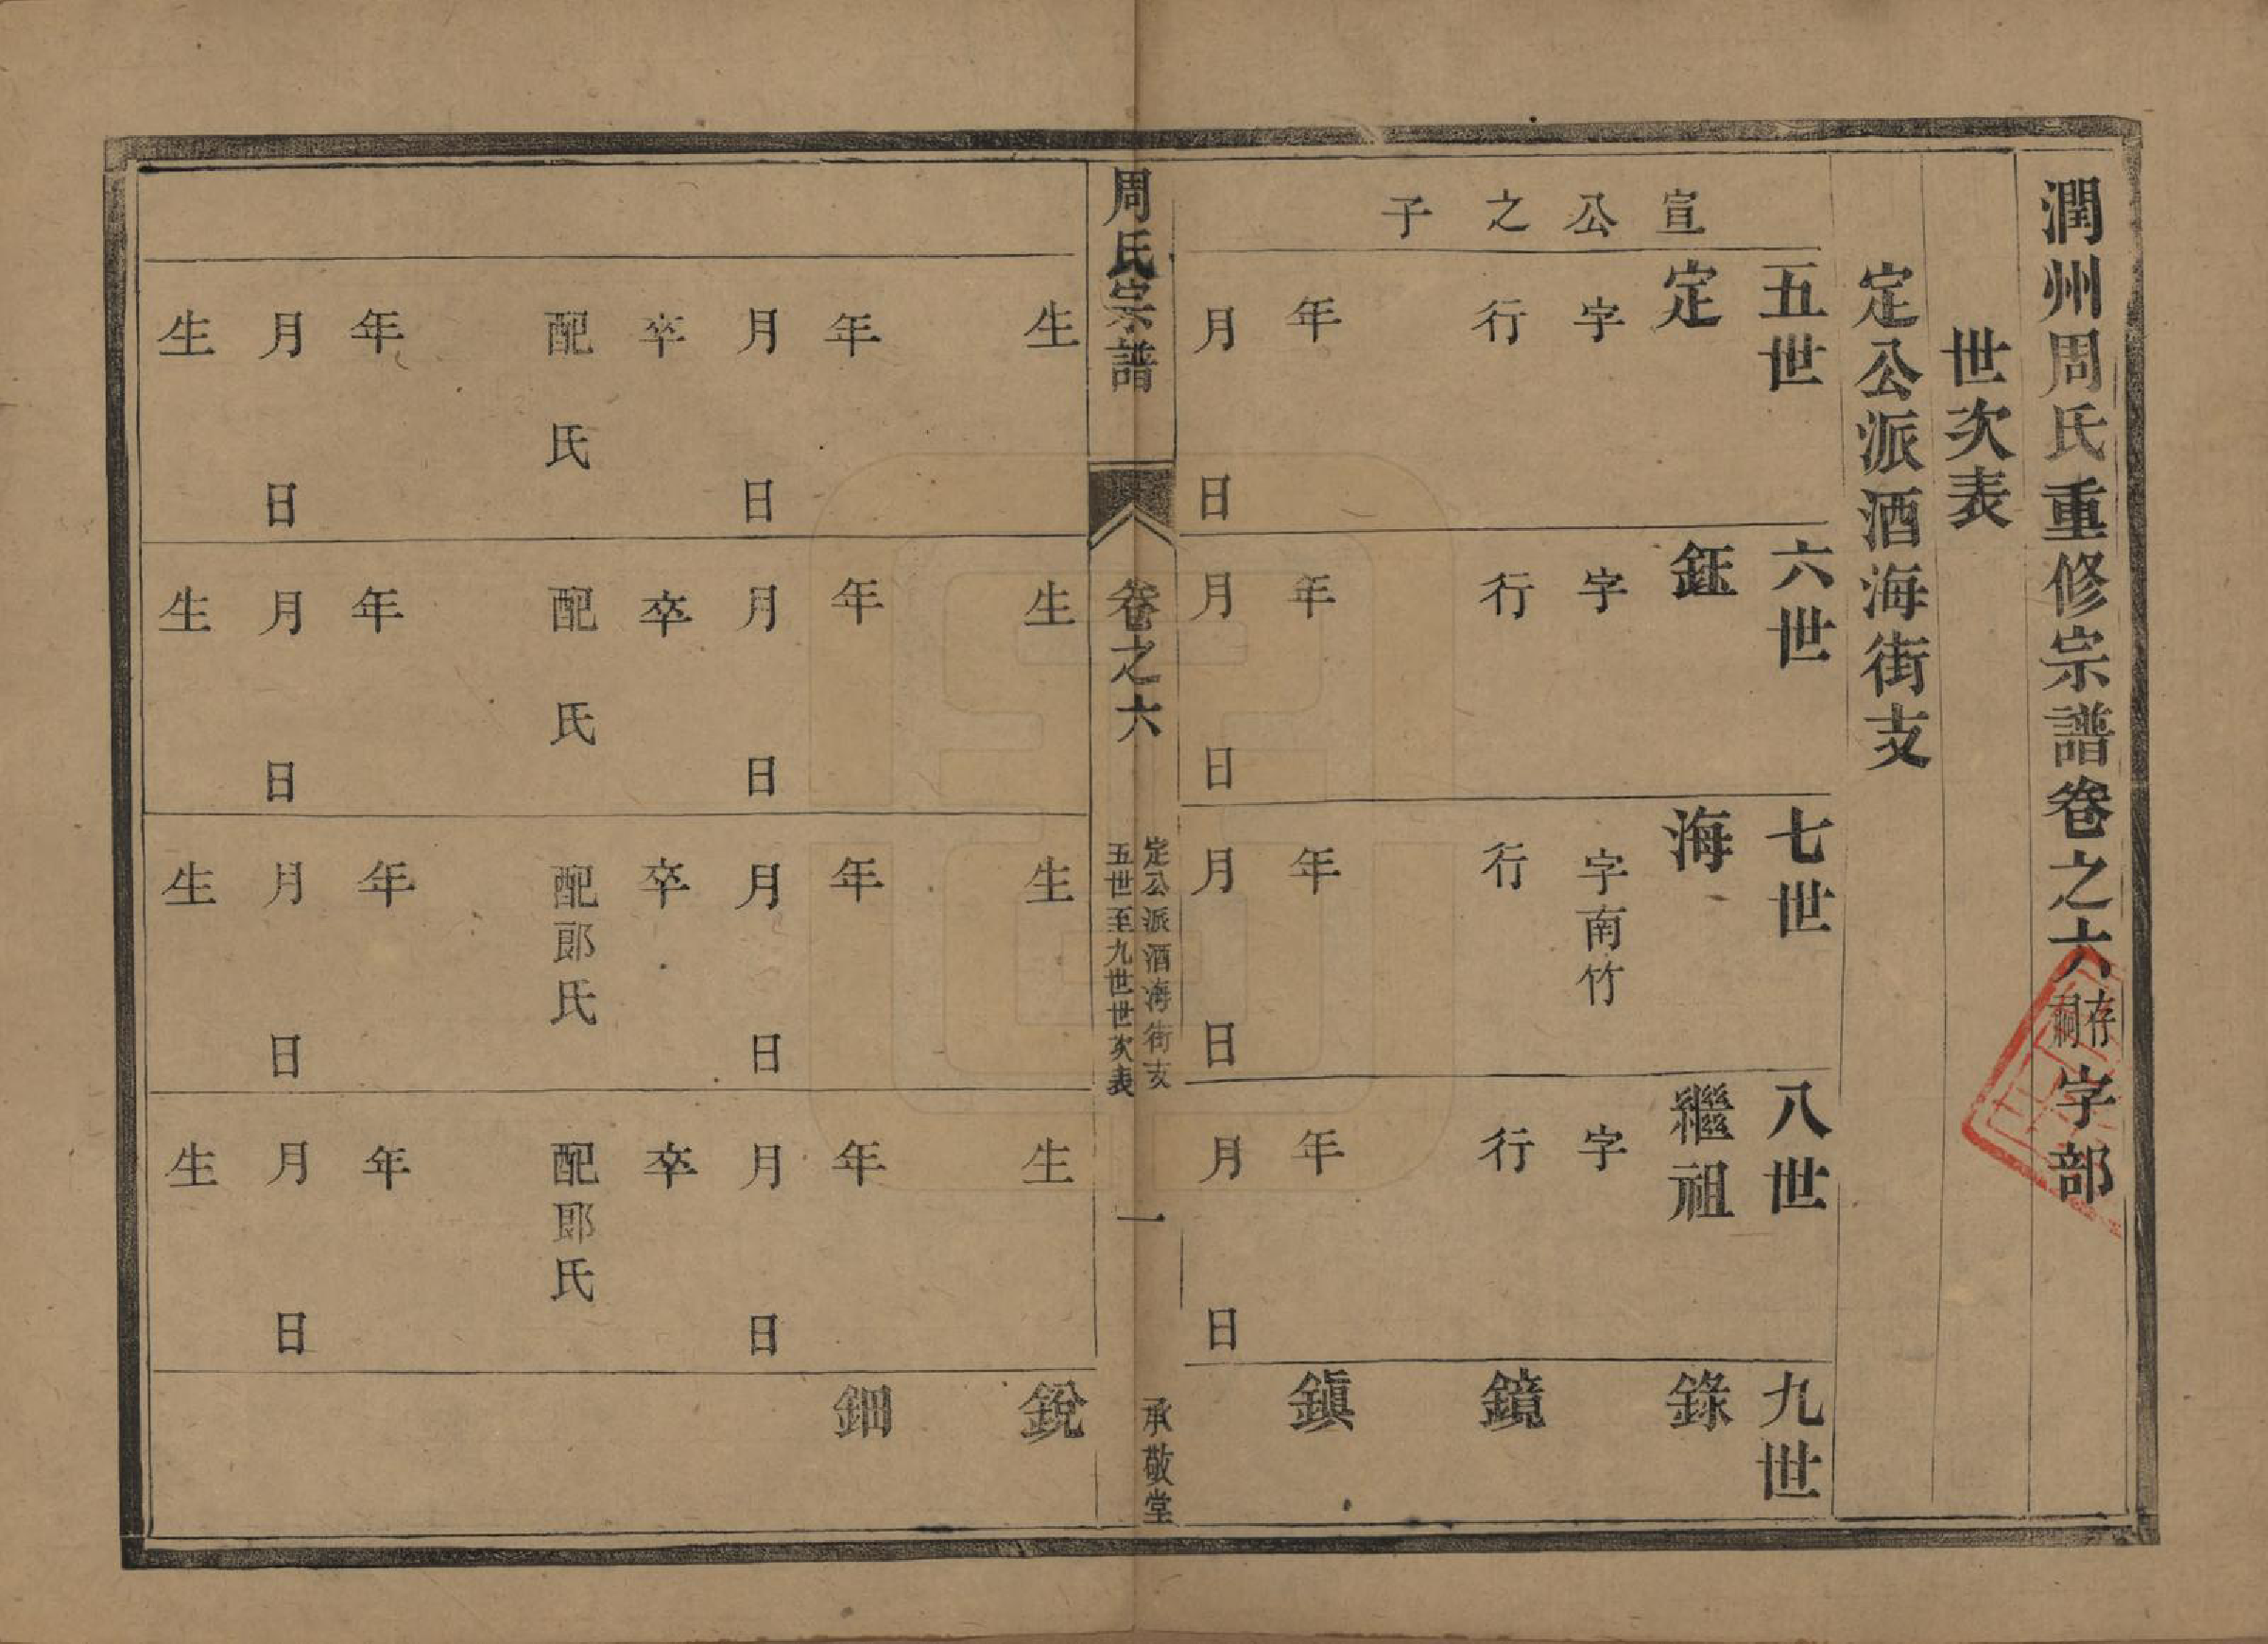 潤州周氏重修宗譜卷之六存祠字部
世次表
定公派酒海街支
宣公之子
五世
定
字
行
年
月 日
生
年
月 日
卒
配 氏
年
月 日
生
六世
鈺
字
行
年
月 日
生
年
月 日
卒
配 氏
年
月 日
生
七世
海
字南竹
行
年
月 日
生
年
月 日
卒
配郎氏
年
月 日
生
八世
繼祖
字
行
年
月 日
生
年
月 日
卒
配郎氏
年
月 日
生
九世
錄
鏡
鎭
銳
鈿
周氏宗譜 卷之六
定公派酒海街支
五世至九世世次表
一
承敬堂